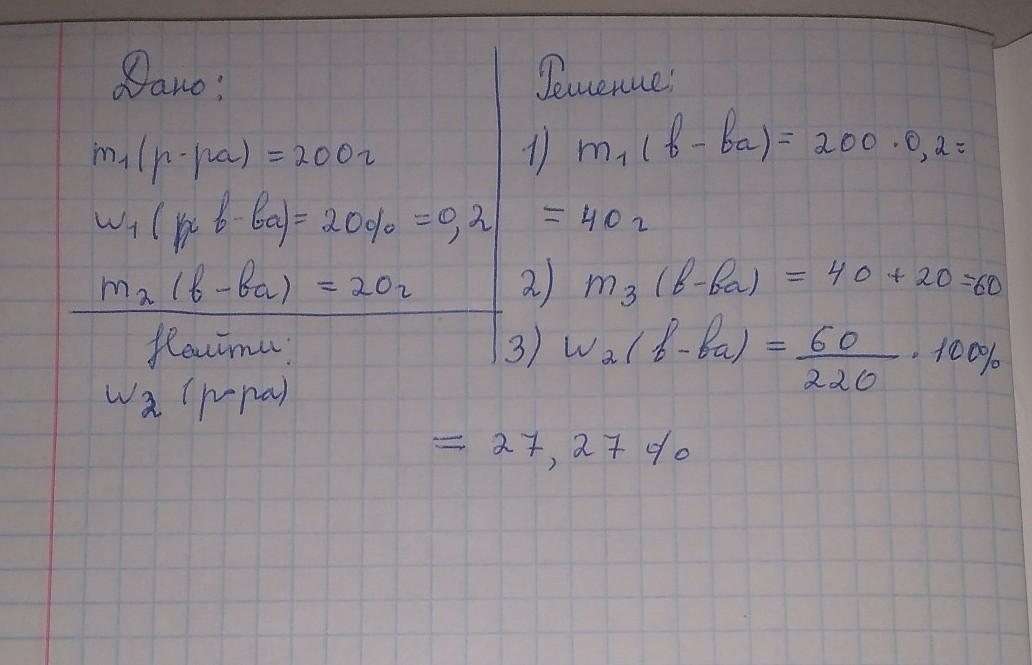 Дано:
m₁(р-ра) = 200г
w₁(в-ва) = 20% = 0,2
m₂ (в-ва) = 20г
Найти:
w₂ (р-ра)
Решение:
1) m₁ (в-ва) = 200 · 0,2 =
= 40г
2) m₃ (в-ва) = 40 + 20 = 60
3) w₂ (в-ва) = 60/220 · 100%
= 27,27 %